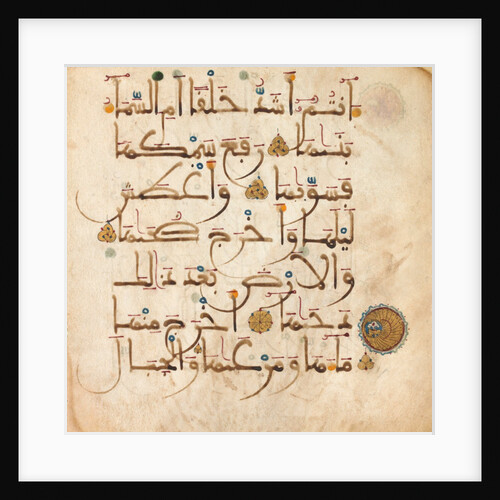 ءَانتم أشدّ خلقا أم السّماء
بنىها رفع سمكها
فسوّىها وأغطش
ليلها وأخرج ضحىها
والأرض بعد ذلك
دحىها أخرج منها
ماءها ومرعىها والجبال